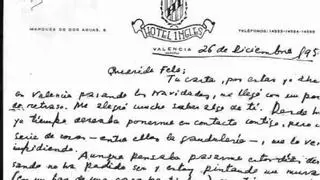 MARQUES DE DOS AGUAS, 6
HOTEL INGLES
VALENCIA
TELEFONOS: 14555 - 14554 - 14226
26 de diciembre/95
Querido Fele:
Tu carta, por estar yo
en Valencia pasando las navidades, me llegó con un po
retraso. Me alegró mucho saber algo de ti. Desde h
ya tiempo deseaba ponerme en contacto contigo, pero u
serie de cosas - entre ellas la gandulería -, me lo ve
impidiendo.
Aunque pensaba pasarme
sando no ha podido ser y estoy pintando un mura